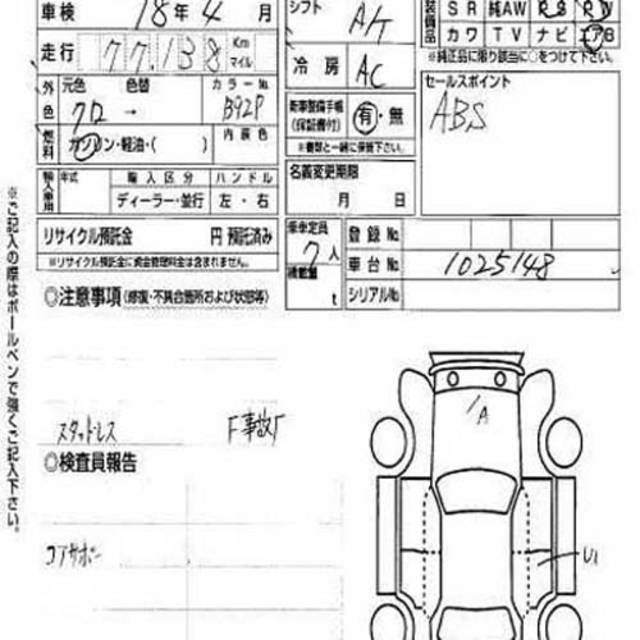 車検 18年4月 シフト AT 装備品 SR 純AW RS PW
カワ TV ナビ エアB
走行 77,138 Km マイル ※純正品に限り該当に○をつけて下さい。
冷房 AC セールスポイント
外色 元色 色替 カラーNo.
クロ → B92P ABS
新車整備手帳(保証書付) 有・無
燃料 ガソリン・軽油・( ) 内装色 ※書類と一緒に保管下さい。
輸入車用 年式 輸入区分 ハンドル 名義変更期限
ディーラー・並行 左・右 月 日
リサイクル預託金 円 預託済み 乗車定員 7人 登録No.
※リサイクル預託金に資金管理料金は含まれません。 積載量 t 車台No. 1025148
シリアルNo.
◎注意事項(修復・不具合箇所および状態等)
スタッドレス F事故
◎検査員報告
コアサポー
A
U1
※ご記入の際はボールペンで強くご記入下さい。